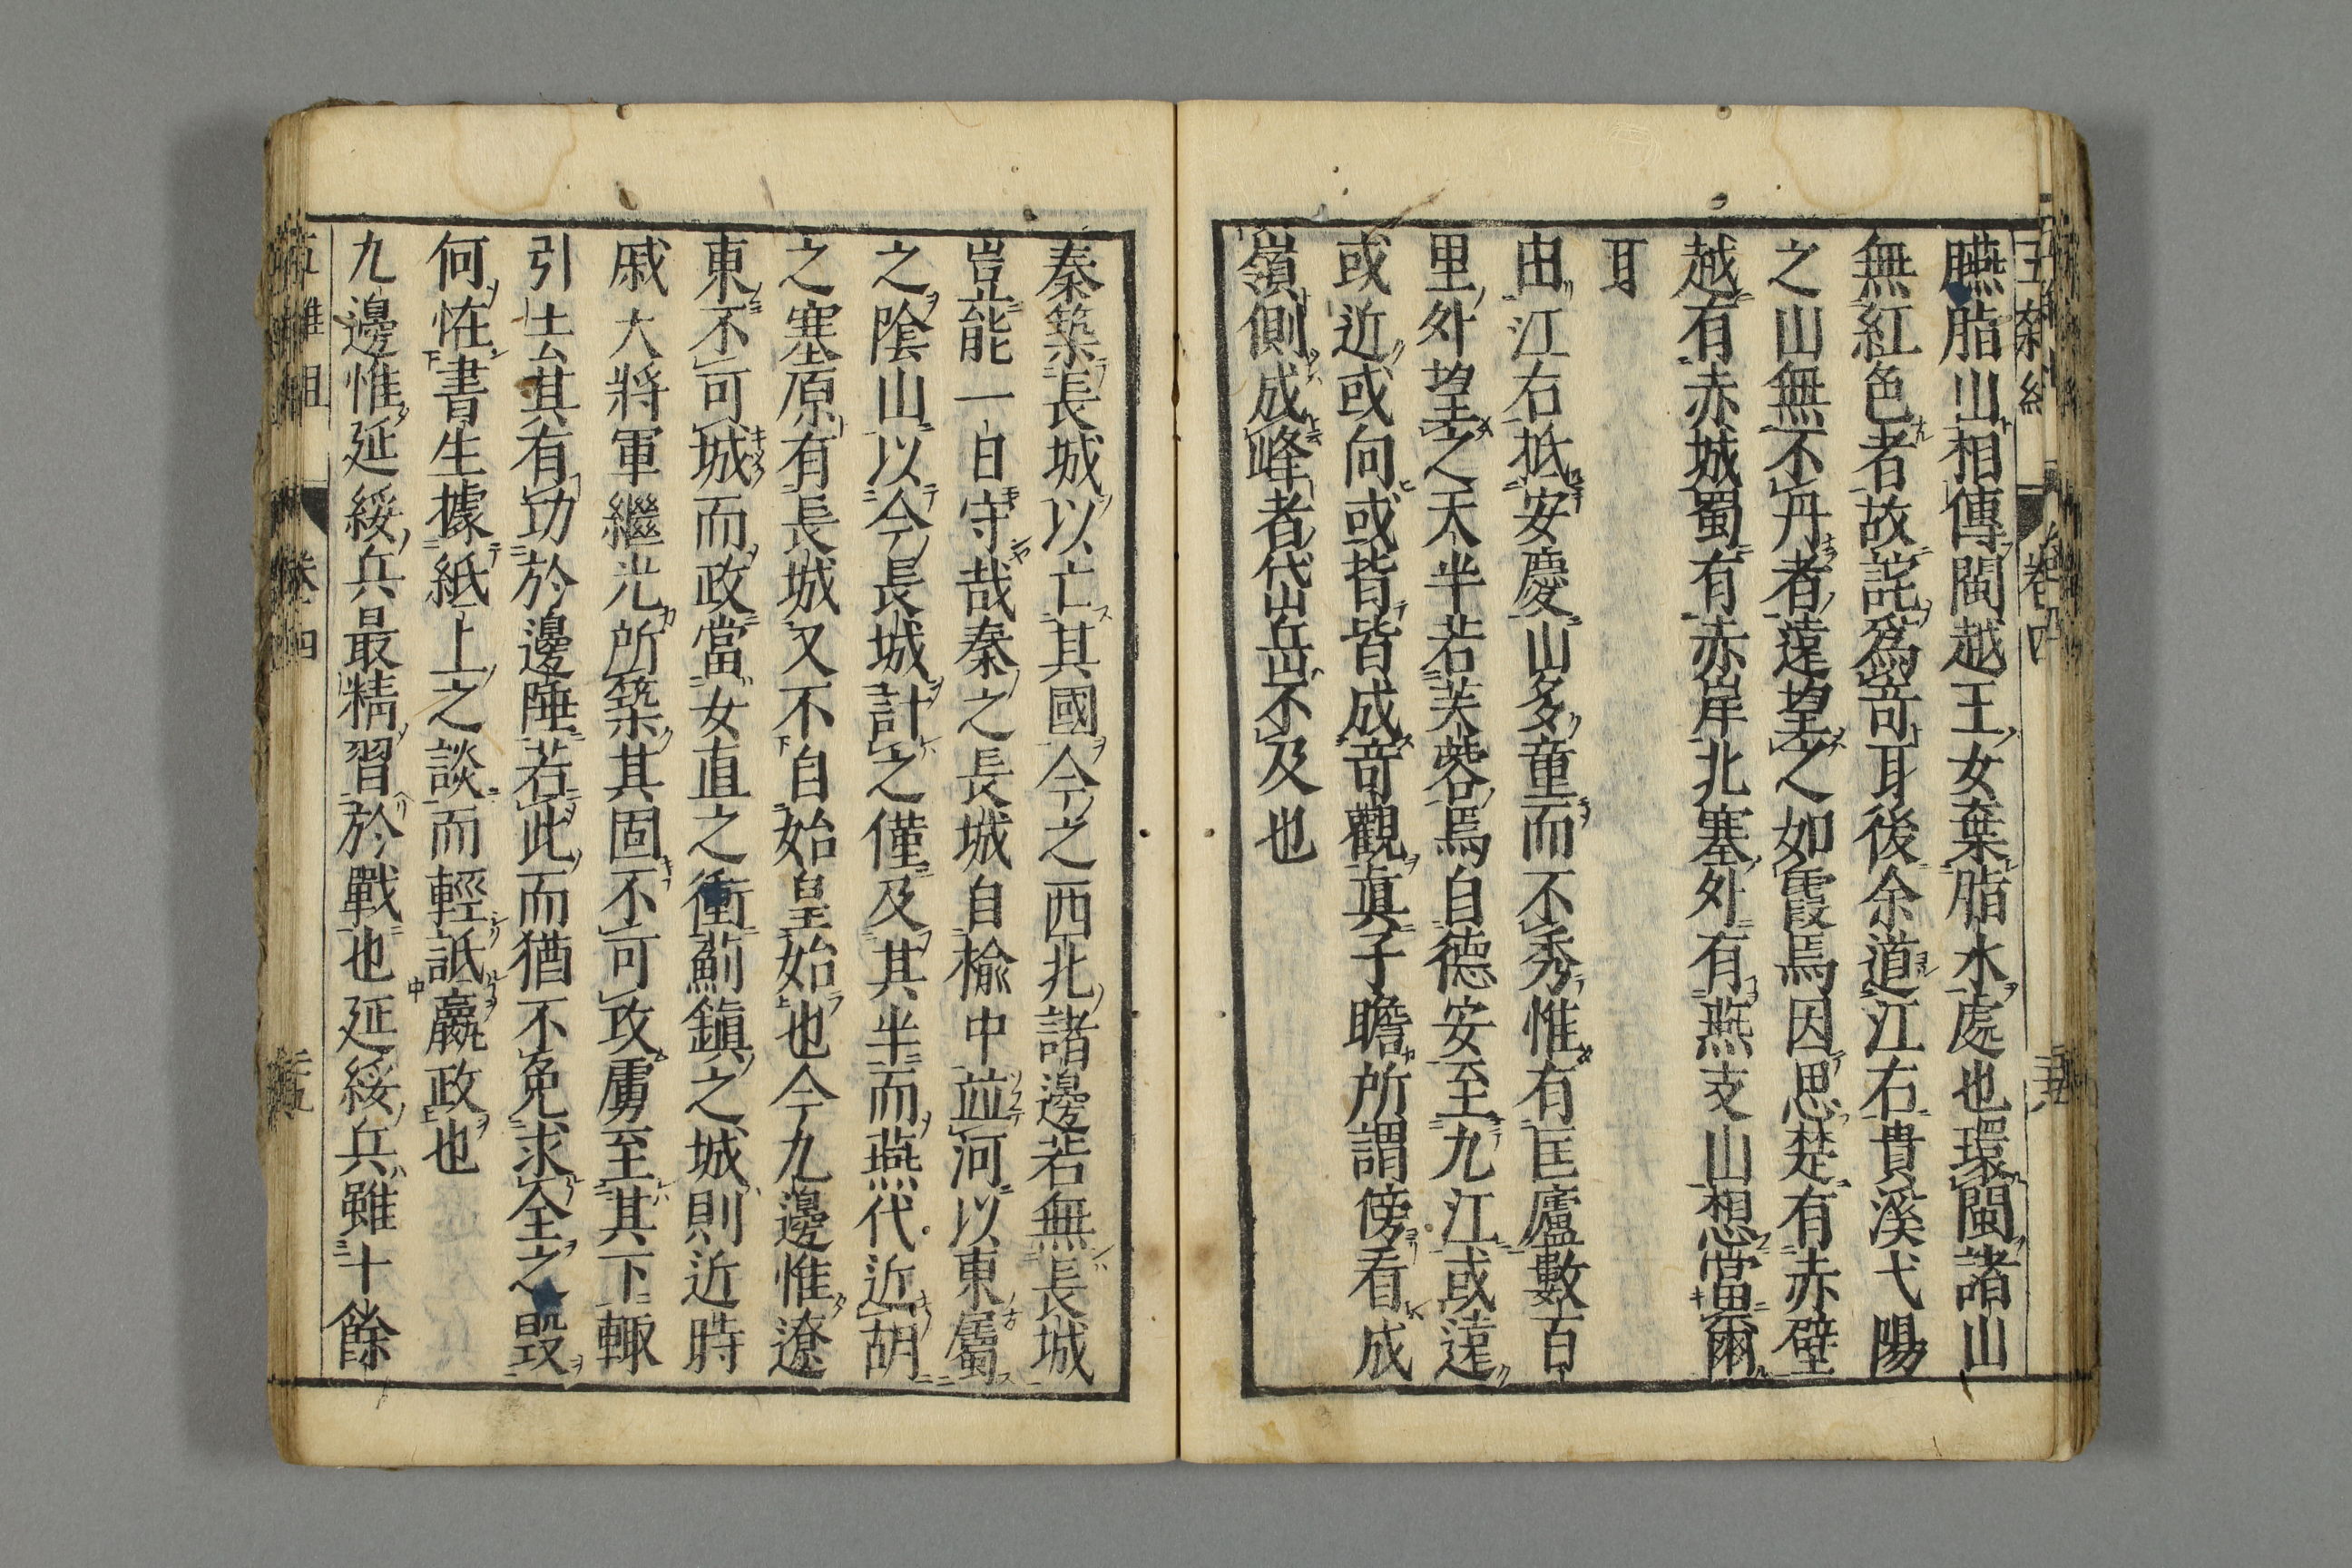 臙脂山相傳閩越王女棄脂水處也環閩諸山
無紅色者故詫爲竒耳後余道江右貴溪弋陽
之山無不丹者遠望之如霞焉因思楚有赤壁
越有赤城蜀有赤岸北塞外有燕支山想當爾
耳
由江右抵安慶山多童而不秀惟有匡廬數百
里外望之天半若芙蓉焉自德安至九江或遠
或近或向或背皆成竒觀眞子瞻所謂傍看成
嶺側成峰者岱岳不及也
秦築長城以亡其國今之西北諸邊若無長城
豈能一日守哉秦之長城自楡中並河以東屬
之陰山以今長城計之僅及其半而燕代近胡
之塞原有長城又不自始皇始也今九邊惟遼
東不可城而政當女直之衝薊鎭之城則近時
戚大將軍繼光所築其固不可攻虜至其下輙
引去其有功於邊陲若此而猶不免求全之毀
何恠書生據紙上之談而輕詆嬴政也
九邊惟延綏兵最精習於戰也延綏兵雖十餘
五雜俎 卷四